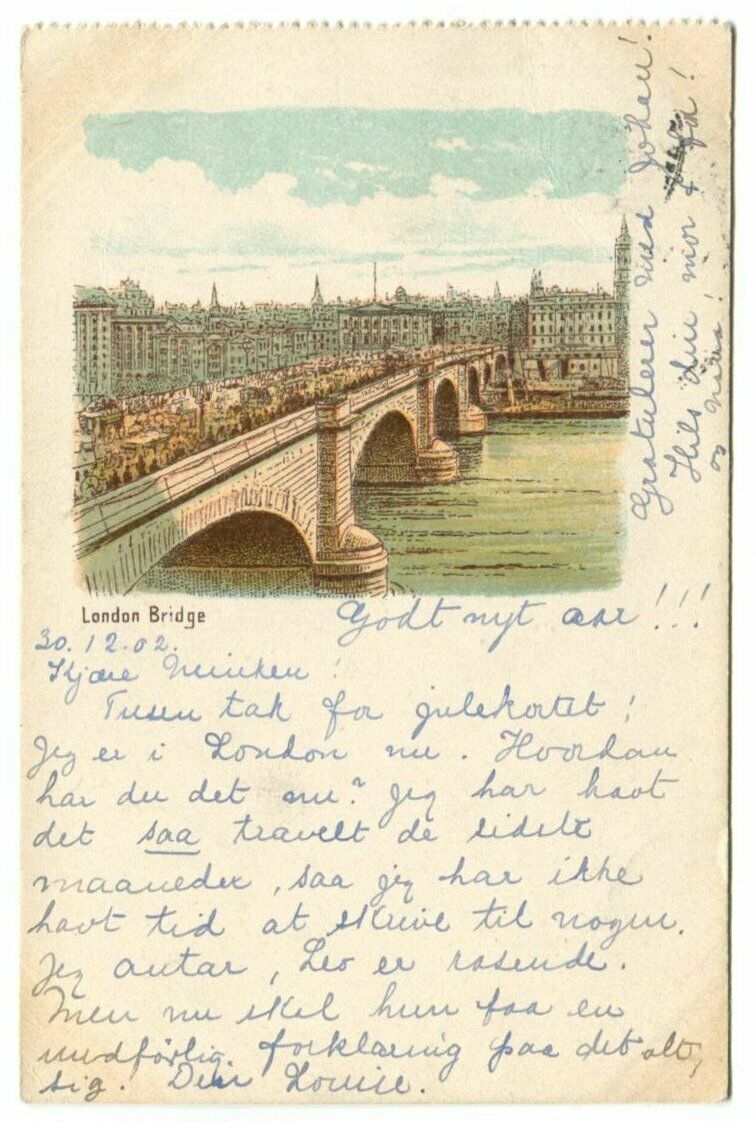 London Bridge
Godt nyt aar!!!
30.12.02.
Kjære
Tusen tak for julekortet!
Jeg er i London nu. Hvordan
har du det nu? Jeg har havt
det saa travelt de sidste
maaneder, saa jeg har ikke
havt tid at skrive til nogen.
Jeg antar, Leo er rasende.
Men nu skal hun faa en
undførlig forklaring paa det alt,
sig. Din Louise.
Gratulerer med Johan!
Hils din mor & far!
og